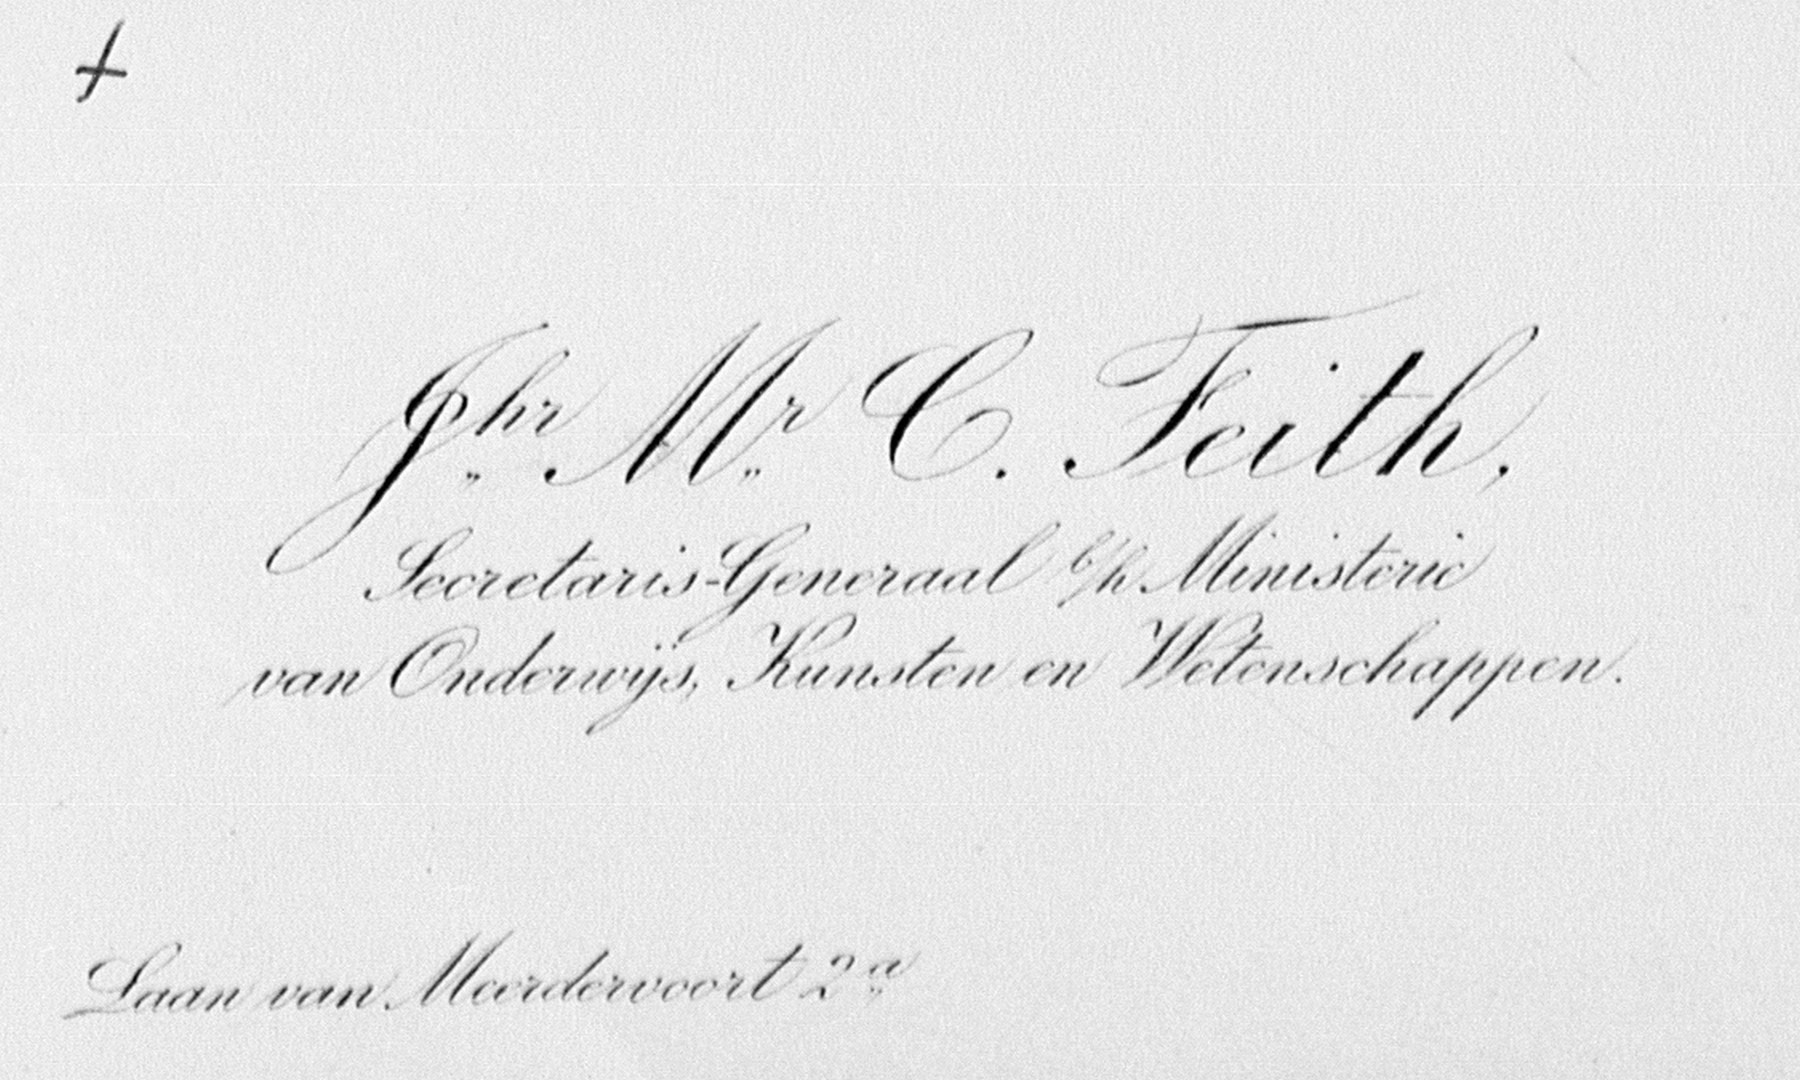 Jhr„ Mr„ C. Feith,
Secretaris-Generaal b/h Ministerie
van Onderwijs, Kunsten en Wetenschappen.
Laan van Meerdervoort 2a